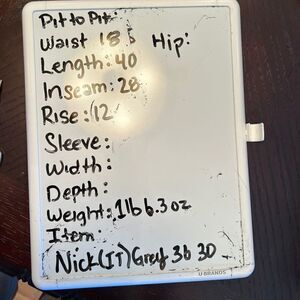 Pit to Pit:
Waist 18.5 Hip:
Length: 40
Inseam: 28
Rise: 12
Sleeve:
Width:
Depth:
Weight: 1lb 6.3 oz
Item:
Nick(JT) Grey 36 30
U BRANDS